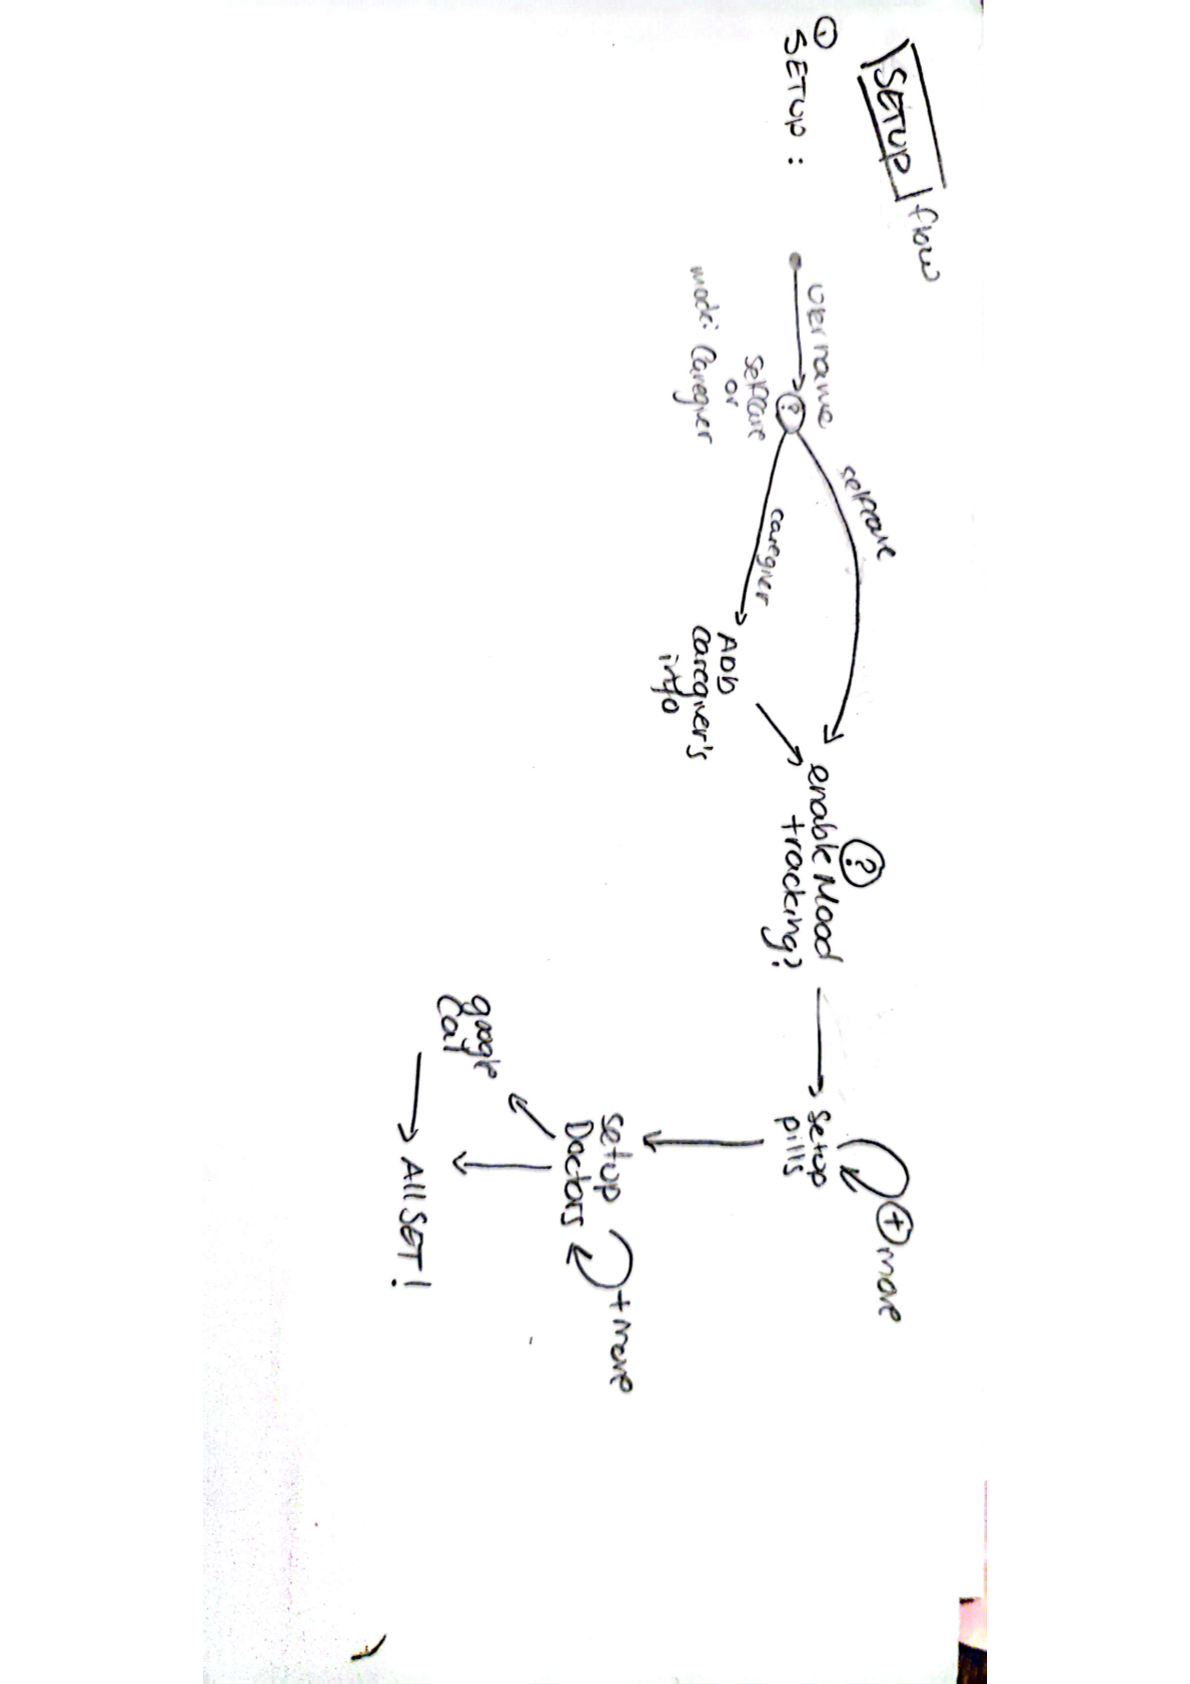 SETUP flow
① SETUP :
username
?
selfcare
or
mode: Caregiver
selfcare
caregiver
ADD
caregiver's
info
?
enable Mood
tracking?
setup
pills
+ more
setup
Doctors
+ more
google
Cal
All SET!